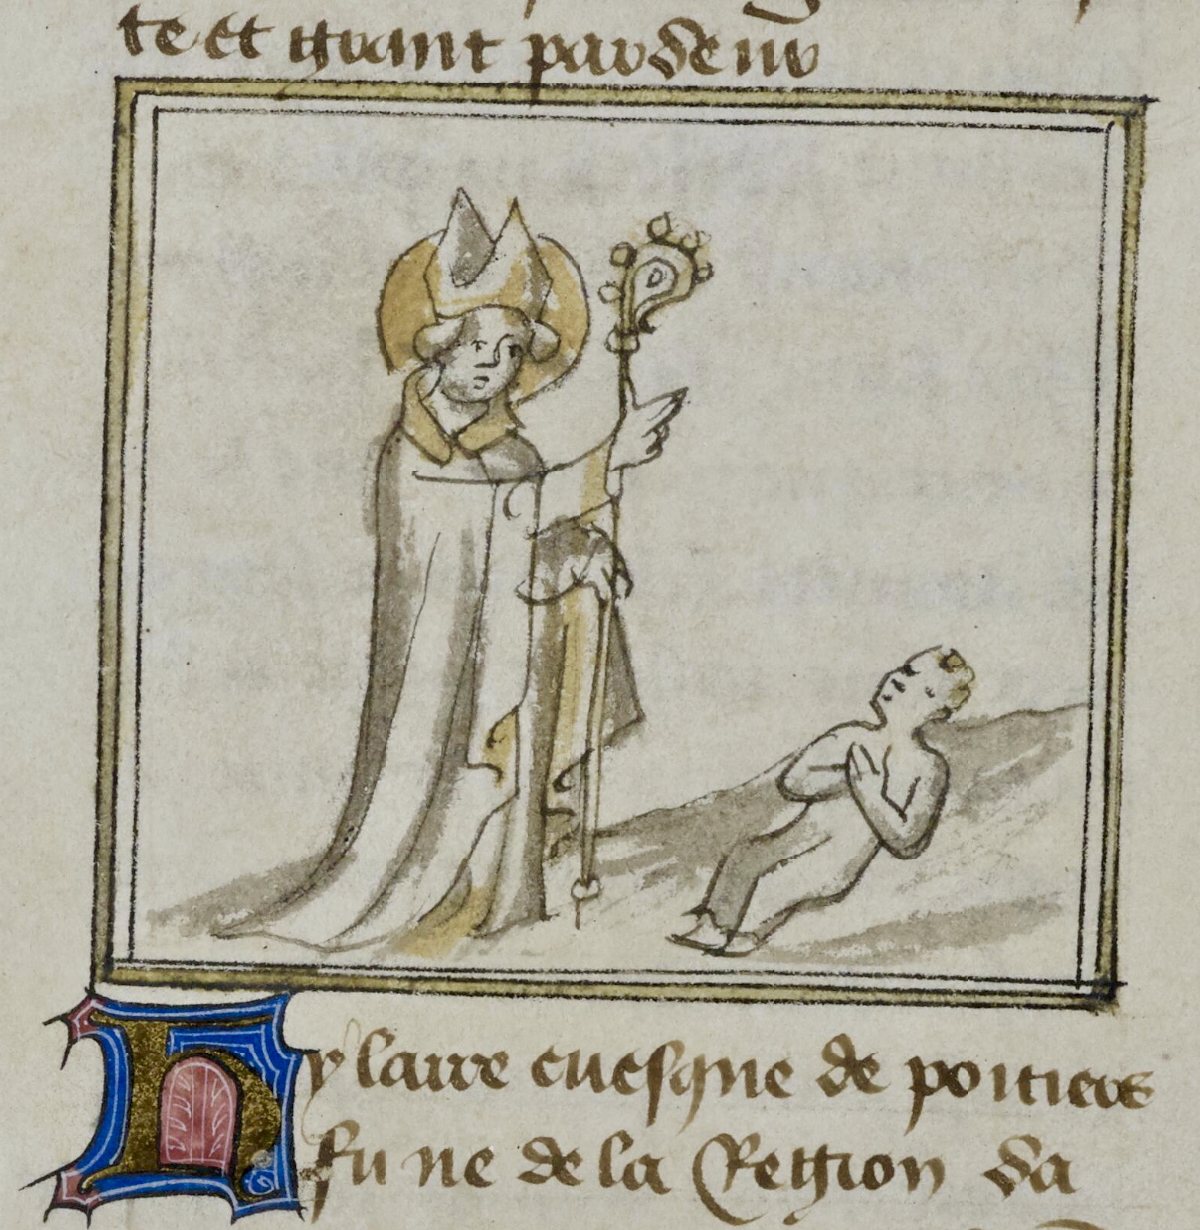 te et quant par deuu
Hylaire euesque de poitiers
fu ne de la Region da